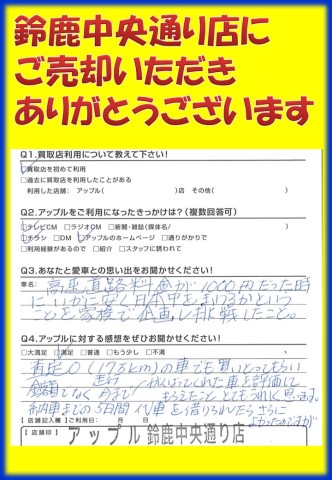 鈴鹿中央通り店に
ご売却いただき
ありがとうございます
Q1.買取店利用について教えて下さい!
□買取店を初めて利用
□過去に買取店を利用したことがある
利用した店舗: アップル( )店 その他( )
Q2.アップルをご利用になったきっかけは?(複数回答可)
□テレビCM □ラジオCM □新聞・雑誌(媒体名/ )
□チラシ □DM □アップルのホームページ □通りがかりで
□利用経験があるので □紹介 □スタッフに誘われて
Q3.あなたと愛車との思い出をお聞かせください!
車名: 高速道路料金が1000円だった時
にいかに安く日本中をまわるかという
ことを家族で企画し挑戦したこと。
Q4.アップルに対する感想をぜひお聞かせください!
□大満足 □満足 □普通 □もう少し □不満
査定0(17万km)の車でも買いとってもらい
金額でなく 今まで がんばってくれた車を評価して
もらえたこと、とてもうれしく思います。
納車までの5日間 代車を借りられたらさらに
よかったのですが
【店舗記入欄】ご利用日: 月 日
【店舗印】 アップル 鈴鹿中央通り店